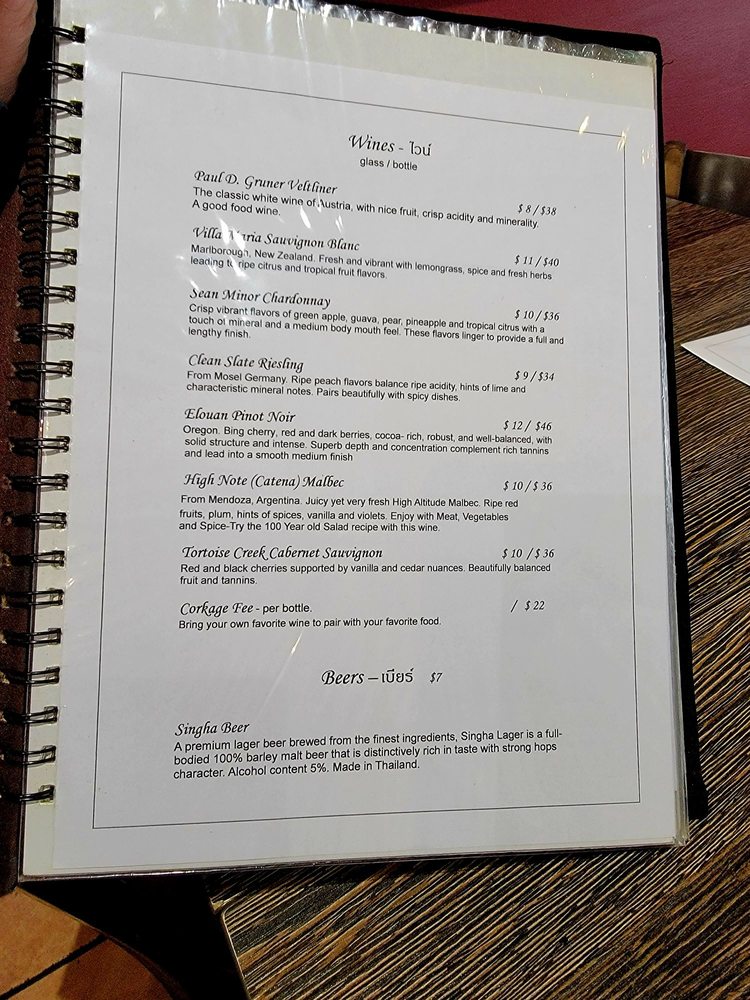 Wines - ไวน์
glass / bottle
Paul D. Gruner Veltliner
$ 8 / $38
The classic white wine of Austria, with nice fruit, crisp acidity and minerality.
A good food wine.
Villa Maria Sauvignon Blanc
$ 11 / $40
Marlborough, New Zealand. Fresh and vibrant with lemongrass, spice and fresh herbs
leading to ripe citrus and tropical fruit flavors.
Sean Minor Chardonnay
$ 10 / $36
Crisp vibrant flavors of green apple, guava, pear, pineapple and tropical citrus with a
touch of mineral and a medium body mouth feel. These flavors linger to provide a full and
lengthy finish.
Clean Slate Riesling
$ 9 / $34
From Mosel Germany. Ripe peach flavors balance ripe acidity, hints of lime and
characteristic mineral notes. Pairs beautifully with spicy dishes.
Elouan Pinot Noir
$ 12 / $46
Oregon. Bing cherry, red and dark berries, cocoa- rich, robust, and well-balanced, with
solid structure and intense. Superb depth and concentration complement rich tannins
and lead into a smooth medium finish
High Note (Catena) Malbec
$ 10 / $ 36
From Mendoza, Argentina. Juicy yet very fresh High Altitude Malbec. Ripe red
fruits, plum, hints of spices, vanilla and violets. Enjoy with Meat, Vegetables
and Spice-Try the 100 Year old Salad recipe with this wine.
Tortoise Creek Cabernet Sauvignon
$ 10 / $ 36
Red and black cherries supported by vanilla and cedar nuances. Beautifully balanced
fruit and tannins.
Corkage Fee - per bottle.
/ $ 22
Bring your own favorite wine to pair with your favorite food.
Beers – เบียร์ $7
Singha Beer
A premium lager beer brewed from the finest ingredients, Singha Lager is a full-
bodied 100% barley malt beer that is distinctively rich in taste with strong hops
character. Alcohol content 5%. Made in Thailand.